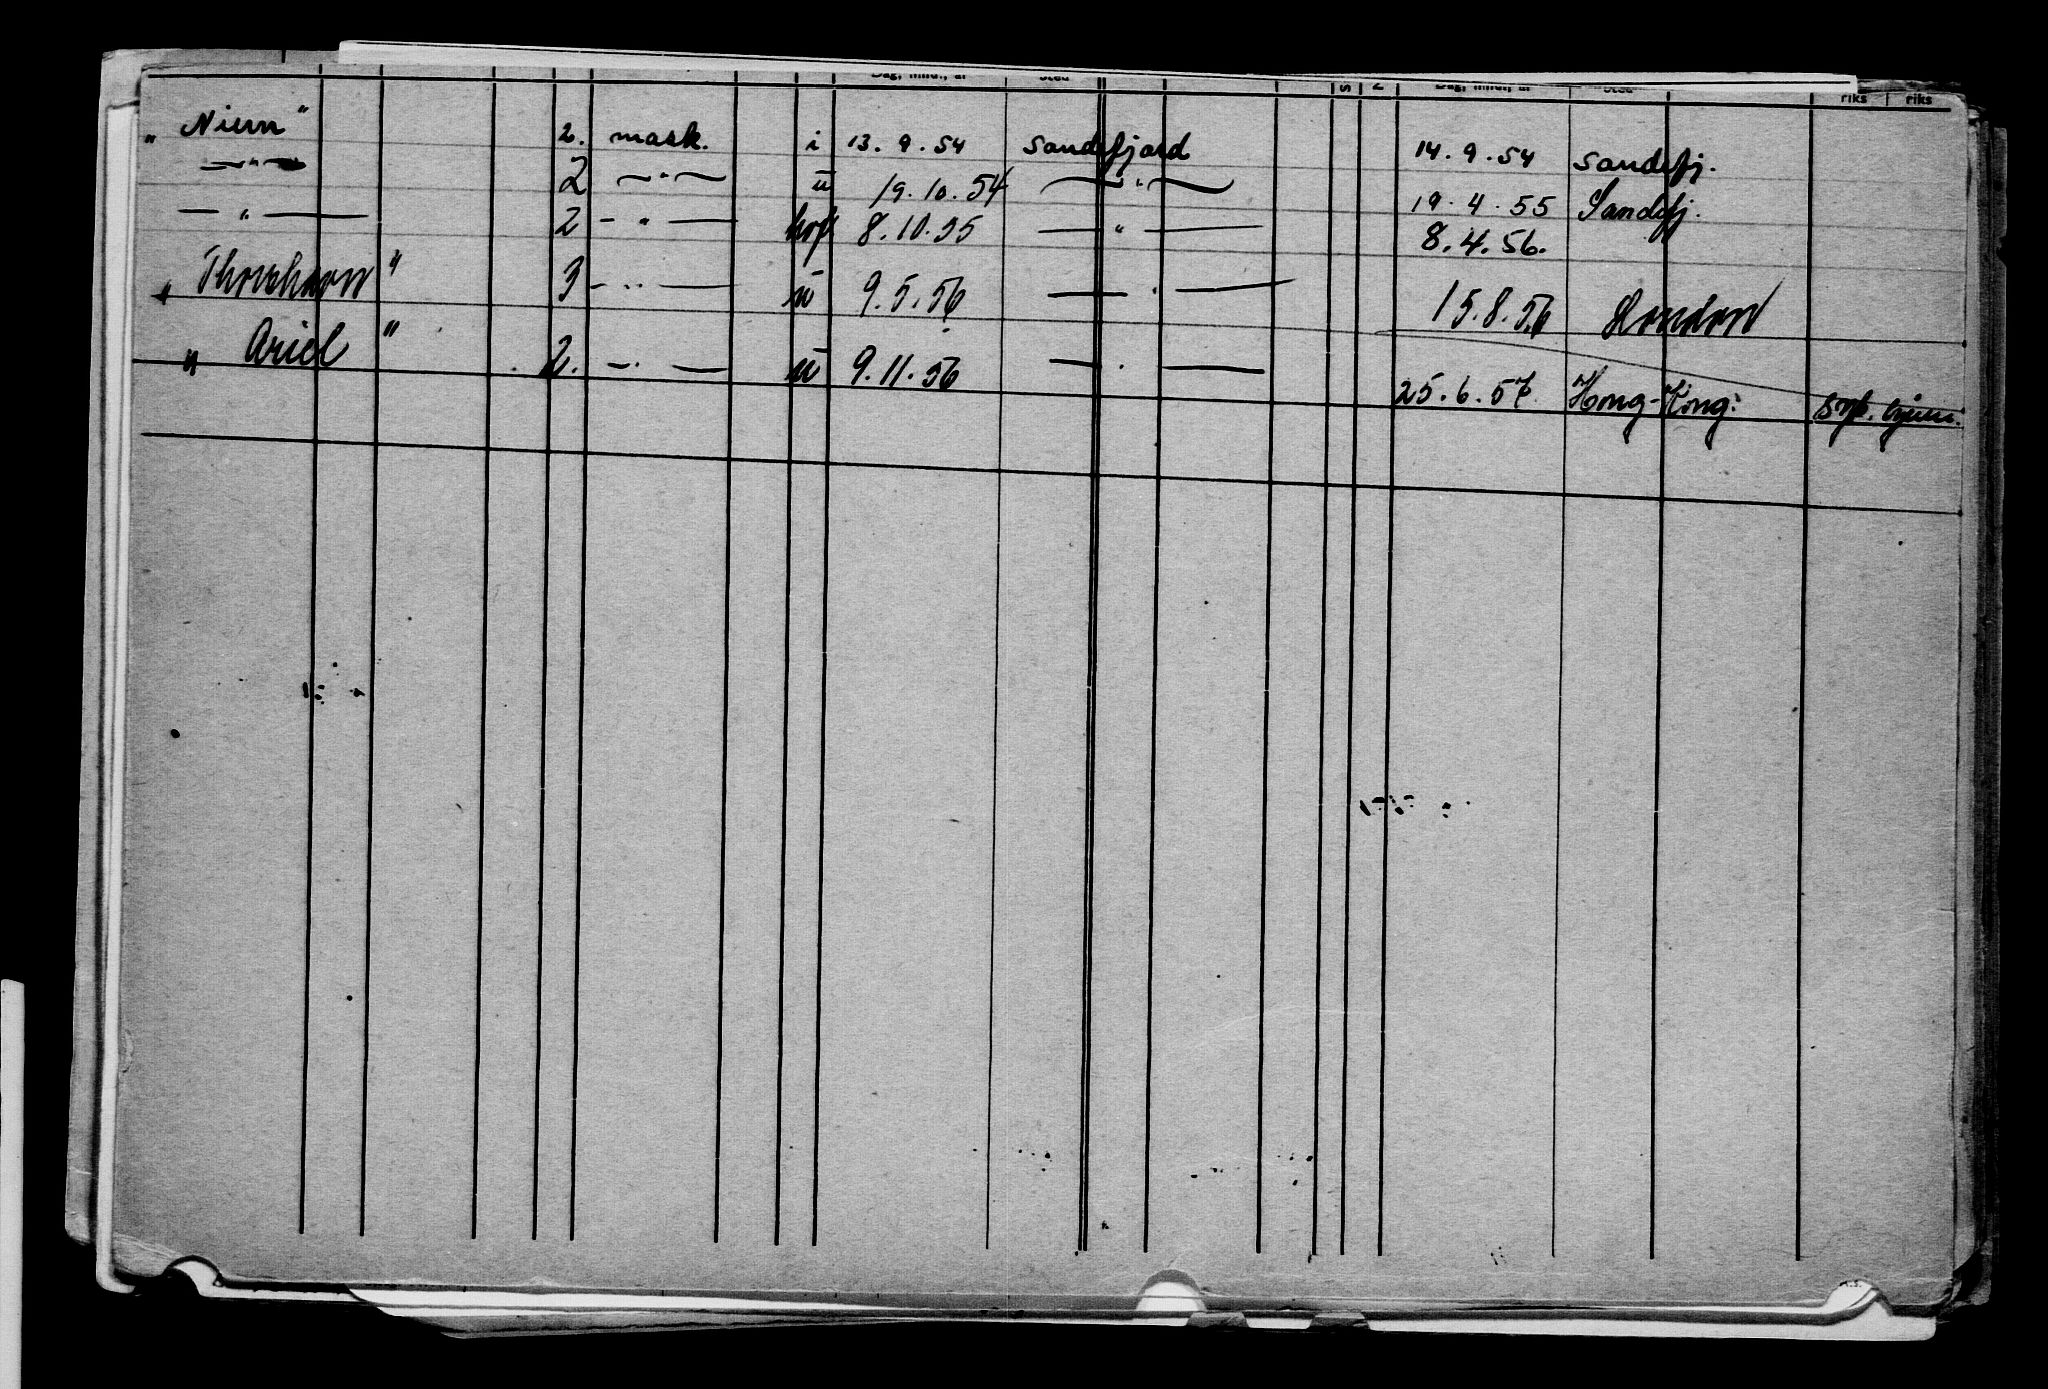 Dag, mnd., år Sted S N Dag, mnd., år Sted riks riks
2. mask. i 13.9.54 Sandefjord 14.9.54 Sandefj.
— " — 2 — " — u 19.10.54 — " — 19.4.55 Sandefj.
— " — 2 — " — 8.10.55 — " — 8.4.56.
" Thorshavn " 3 — " — u 9.5.56 — " — 15.8.56 London
" Ariel " 2. — " — u 9.11.56 — " — 25.6.57 Hong-Kong. hjem.